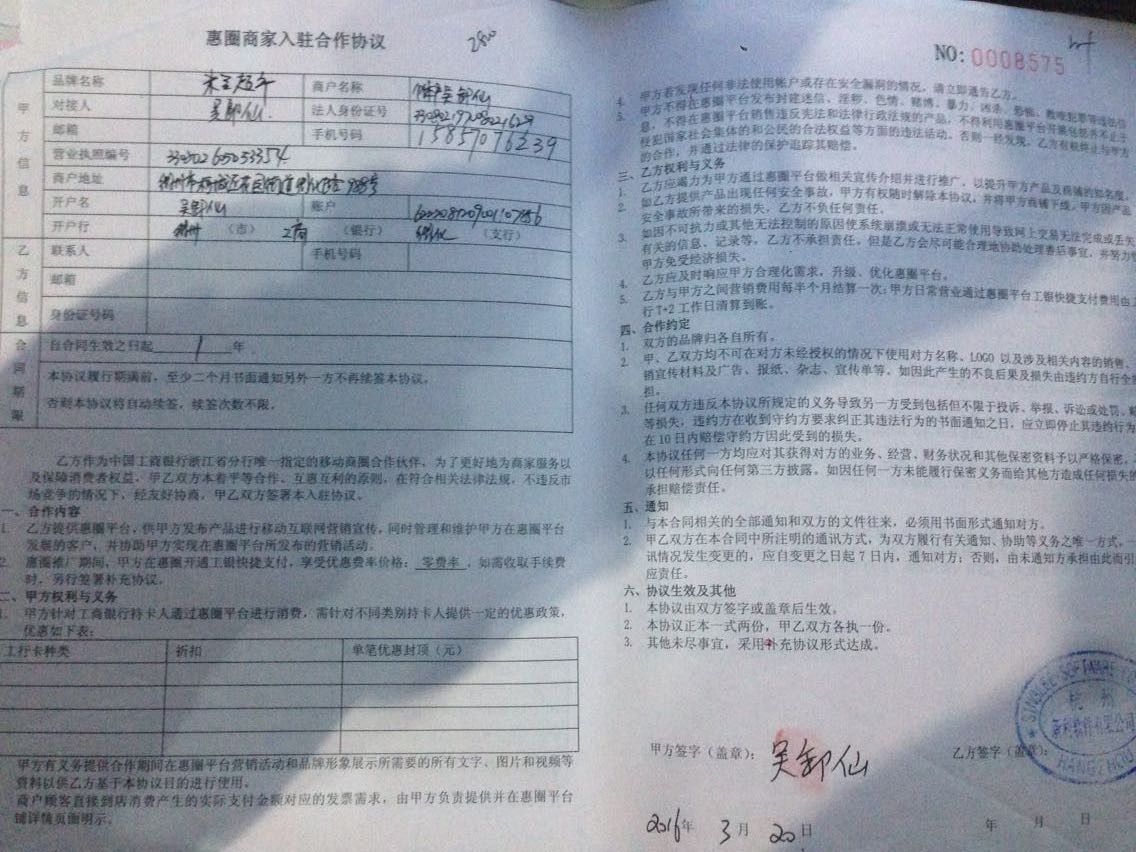 惠圈商家入驻合作协议
2800
品牌名称
商户名称
甲方信息
对接人 吴卸仙
法人身份证号
邮箱
手机号码 15857076239
营业执照编号 330802605053354
商户地址
开户名 吴卸仙
账户
开户行 (市) 工商 (银行) (支行)
乙方信息
联系人
手机号码
邮箱
身份证号码
合同期限
自合同生效之日起 1 年。
本协议履行期满前,至少二个月书面通知另外一方不再续签本协议,
否则本协议将自动续签,续签次数不限。
乙方作为中国工商银行浙江省分行唯一指定的移动商圈合作伙伴,为了更好地为商家服务以
及保障消费者权益,甲乙双方本着平等合作、互惠互利的原则,在符合相关法律法规,不违反市
场竞争的情况下,经友好协商,甲乙双方签署本入驻协议。
一、合作内容
1. 乙方提供惠圈平台,供甲方发布产品进行移动互联网营销宣传,同时管理和维护甲方在惠圈平台
发展的客户,并协助甲方实现在惠圈平台所发布的营销活动。
2. 惠圈推广期间,甲方在惠圈开通工银快捷支付,享受优惠费率价格:零费率,如需收取手续费
时,另行签署补充协议。
二、甲方权利与义务
1. 甲方针对工商银行持卡人通过惠圈平台进行消费,需针对不同类别持卡人提供一定的优惠政策,
优惠如下表:
工行卡种类 折扣 单笔优惠封顶(元)
甲方有义务提供合作期间在惠圈平台营销活动和品牌形象展示所需要的所有文字、图片和视频等
资料以供乙方基于本协议目的进行使用。
商户顾客直接到店消费产生的实际支付金额对应的发票需求,由甲方负责提供并在惠圈平台
铺详情页面明示。
NO: 0008575
4. 甲方若发现任何非法使用帐户或存在安全漏洞的情况,请立即通告乙方。
5. 甲方不得在惠圈平台发布封建迷信、淫秽、色情、赌博、暴力、凶杀、恐怖、教唆犯罪等违法信
息,不得在惠圈平台销售违反宪法和法律行政法规的产品,不得利用惠圈平台开展包括并不止于
侵犯国家社会集体的和公民的合法权益等方面的违法活动。否则一经发现,乙方有权终止与甲方
的合作,并通过法律的保护追踪其赔偿。
三、乙方权利与义务
1. 乙方应竭力为甲方通过惠圈平台做相关宣传介绍并进行推广,以提升甲方产品及商铺的知名度。
2. 如乙方提供产品出现任何安全事故,甲方有权随时解除本协议,并将甲方商铺下线,甲方因产品
安全事故所带来的损失,乙方不负任何责任。
3. 如因不可抗力或其他无法控制的原因使系统崩溃或无法正常使用导致网上交易无法完成或丢失
有关的信息、记录等,乙方不承担责任。但是乙方会尽可能合理地协助处理善后事宜,并努力使
甲方免受经济损失。
4. 乙方应及时响应甲方合理化需求,升级、优化惠圈平台。
5. 乙方与甲方之间营销费用每半个月结算一次;甲方日常营业通过惠圈平台工银快捷支付费用由工
行T+2工作日清算到账。
四、合作约定
1. 双方的品牌归各自所有。
2. 甲、乙双方均不可在对方未经授权的情况下使用对方名称、LOGO以及涉及相关内容的销售、
销宣传材料及广告、报纸、杂志、宣传单等。如因此产生的不良后果及损失由违约方自行全
担。
3. 任何双方违反本协议所规定的义务导致另一方受到包括但不限于投诉、举报、诉讼或处罚、
等损失,违约方在收到守约方要求纠正其违法行为的书面通知之日,应立即停止其违约行为
在10日内赔偿守约方因此受到的损失。
4. 本协议任何一方均应对其获得对方的业务、经营、财务状况和其他保密资料予以严格保密,
以任何形式向任何第三方披露。如因任何一方未能履行保密义务而给其他方造成任何损失的
承担赔偿责任。
五、通知
1. 与本合同相关的全部通知和双方的文件往来,必须用书面形式通知对方。
2. 甲乙双方在本合同中所注明的通讯方式,为双方履行有关通知、协助等义务之唯一方式,
讯情况发生变更的,应自变更之日起7日内,通知对方;否则,由未通知方承担由此而引
应责任。
六、协议生效及其他
1. 本协议由双方签字或盖章后生效。
2. 本协议正本一式两份,甲乙双方各执一份。
3. 其他未尽事宜,采用补充协议形式达成。
甲方签字(盖章): 吴卸仙
乙方签字(盖章):
SINGLEE SOFTWARE
杭州
新利软件有限公司
HANGZHOU
2016年 3月 20日
年 月 日